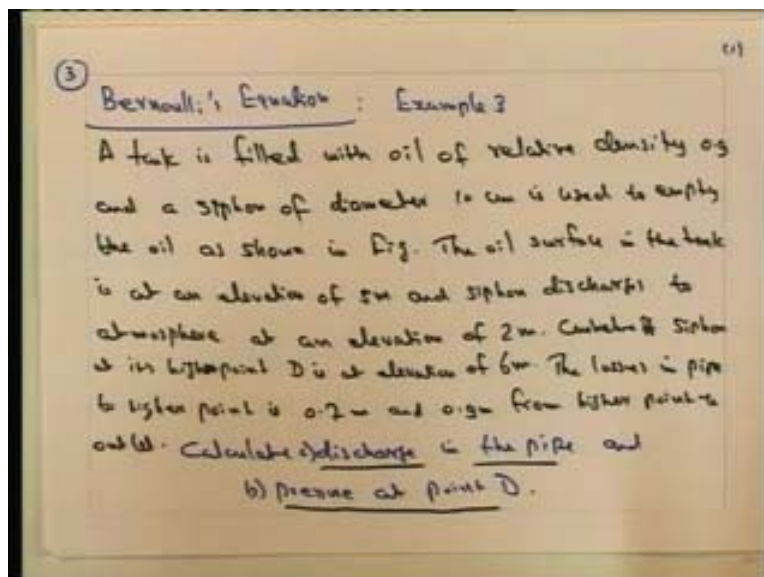 (1)
3
Bernoulli's Equation : Example 3
A tank is filled with oil of relative density 0.9
and a syphon of diameter 10 cm is used to empty
the oil as shown in Fig. The oil surface in the tank
is at an elevation of 5m and siphon discharges to
atmosphere at an elevation of 2m. siphon
at its highes point D is at elevation of 6m. The losses in pipe
to highes point is 0.7m and 0.9m from highes point to
outlet. Calculate a) discharge in the pipe and
b) pressure at point D.